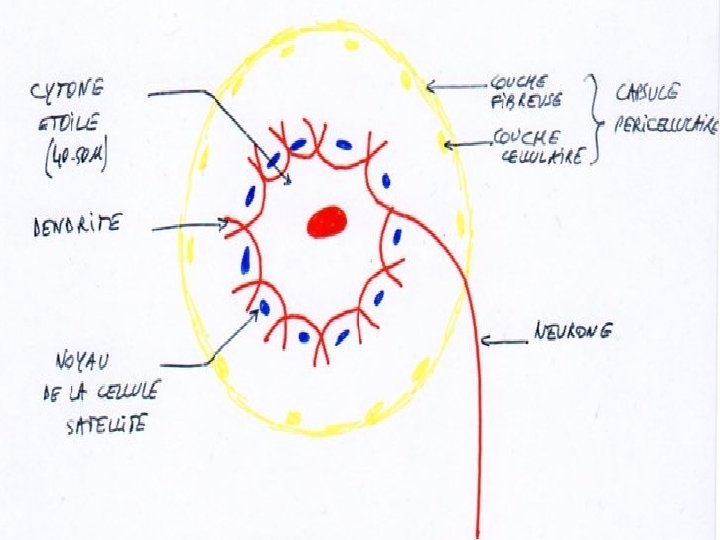 CYTONE
ETOILE
(40-50µ)
DENDRITE
NOYAU
DE LA CELLULE
SATELLITE
COUCHE
FIBREUSE
COUCHE
CELLULAIRE
CAPSULE
PERICELLULAIRE
NEURONE